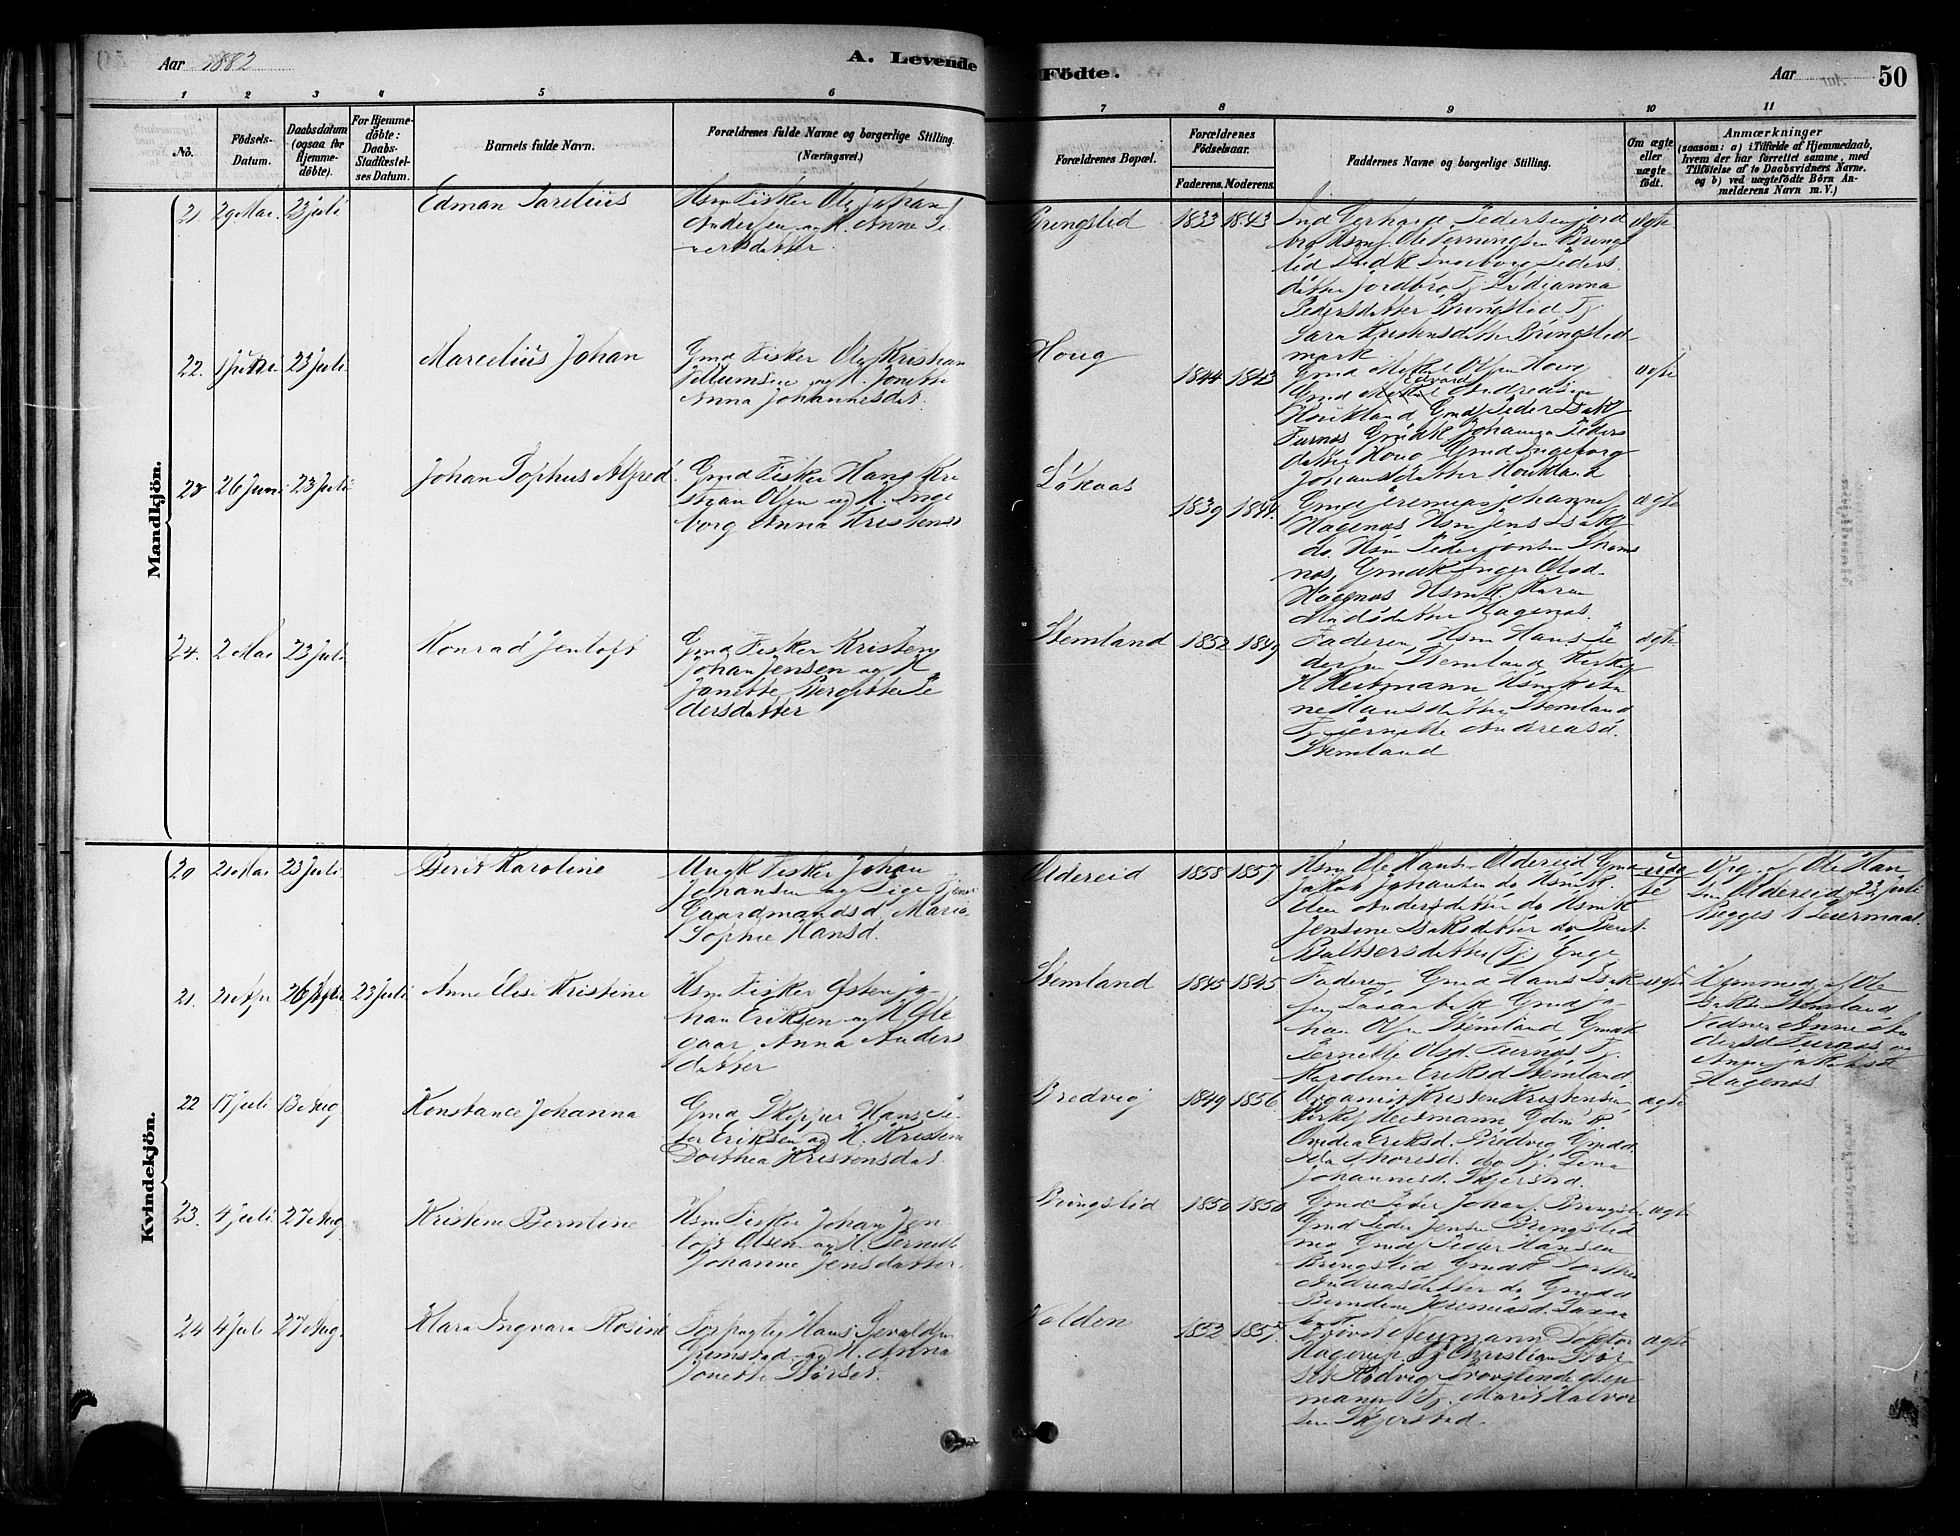 Aar 1882
A. Levende
Födte.
Aar
50
1 2 3 4 5 6 7 8 9 10 11
No.
Födsels-
Datum.
Daabsdatum
(ogsaa for
Hjemme-
döbte).
For Hjemme-
döbte:
Daabs-
Stadfæstel-
ses Datum.
Barnets fulde Navn.
Forældrenes fulde Navne og borgerlige Stilling.
(Næringsvei.)
Forældrenes Bopæl.
Forældrenes
Födselsaar.
Faderens. Moderens.
Faddernes Navne og borgerlige Stilling.
Om ægte
eller
uægte
födt.
Anmærkninger
(saasom: a) i Tilfælde af Hjemmedaab,
hvem der har forrettet samme, med
Tilföielse af to Daabsvidners Navne,
og b) ved uægtefödte Börn An-
melderens Navn m. V.)
Mandkjön.
21. 29 Mai 23 juli
Edman Parelius
Hsm Fisker Ole Johan
Andersen og H. Anne Si
vertsdatter
Bringslid
1833 1843
Ind Gerhard Pedersen jord
bro Hsmf. Ole Henningsen Brings
lid Indk Ingeborg Peders
datter jordbro Pj. Lidianna
Pedersdatter Bringslid Pj.
Sara Kristensdatter Bringslid
mark
ægte
22. 1 juni 23 Juli
Marcelius Johan
Gmd Fisker Ole Kristian
Villumsen og H. Jonette
Anna Johannesdat.
Houg
1844 1843
Gmd Mikal Olsen Houg
Gmd Edvard Andreasen
Houkland Gmd Peder Isaks
Furnos Gmdk Johanna Peders
datter Houg Gmd Ingeborg
Johansdatter Houkland
ægte
23 26 Juni 23 Juli
Johan Sophus Alfred
Gmd Fisker Hans Kri
stian Olsen og H. Inge
borg Anna Kristens
Løkaas
1839 1844
Gmd Jeremias Johannes
Hagenos Hsm Jens Isaks
do. Hsm Peder Jonsen
nos, Gmdk Inger Olsd
Hagenos Hsmk. Karen
Hagenos.
ægte
24. 2 Mai 23 Juli
Konrad Jentoft
Gmd Fisker Kristen
Johan Jensen og H
Janette Bergitte Pe
dersdatter
Stemland
1852 1849
Faderen Hsm Hans Pe
dersen Stemland Kirkes
H Heitmann Hsmk Sti
ne Hansdatter Stemland
Pj. Pernille Andreasd.
Stemland
ægte
Kvindekjön.
20 21 Mai 23 Juli
Berit Karoline
Ungk Fisker Johan
Johansen og Pige Tjene
Gaardmandsd. Maria
Sophie Hansd.
Oldereid
1858 1857
Hsm Ole Hansen Oldereid Gmd
Jakob Johansen do Hsmk.
Elen Andersdatter do Hsmk
Jensine Isaksdatter do Berit
Baltsersdatter Pj. Enge
uæg
te
Opg. af Ole Han
sen Oldereid 23 juli
Begges 1 Leiermaal.
21. 21 Apr 26 Apr 23 juli
Anne Elise Kristine
Hsm Fisker Østen Jo
han Eriksen og H Ole
gaar Anna Anders
datter
Stemland
1845 1845
Faderen Gmd Hans Isak
sen Laxaabak Gmd Jo
han Olsen Stemland Gmdk
Pernille Olsd. Furnos Pj.
Karoline Eriksd Stemland
ægte
Hjemmed. af Ole
Isaksen Stemland
Vidner Anne An
dersd Furnos og
Anne Jakobsd
Hagenos
22 17 juli 13 Aug
Konstance Johanna
Gmd Skipper Hans Pe
ter Eriksen og H. Kristine
Dorthea Kristensdat.
Bredvig
1849 1856
Organist Kristen Kristensen
Kirkes Heitmann Gdm K
Ovidia Eriksd. Bredvig Gmdd
Ida Thoresd. do Pj. Lena
Johannesd. Skjerstad.
ægte
23. 4 juli 27 Aug
Kristine Berntine
Hsm Fisker Johan Jen
toft Olsen og H. Pernille
Johanne Jensdatter.
Bringslid
1850 1850
Gmd Peder Johans. Bringsli
Gmd Peder Jensen Bringslid
mo Gmds Peder Hansen
Bringslid Gmdk Dorthea
Andreasdatter do Gmdd
Berndine Jeremiasd. Laxaa
bak
ægte
24 4 juli 27 Aug.
Klara Ingvara Rosine
Forpagter Hans Gerald
Grimstad og H. Anna
Jonette Børset.
Volden
1852 1857.
Provst Neumann Doktor
Hagerup Christian Bør
set Rødvig Provstinde Neu
mann Pj. Marit Halvor
sen Skjerstad.
ægte